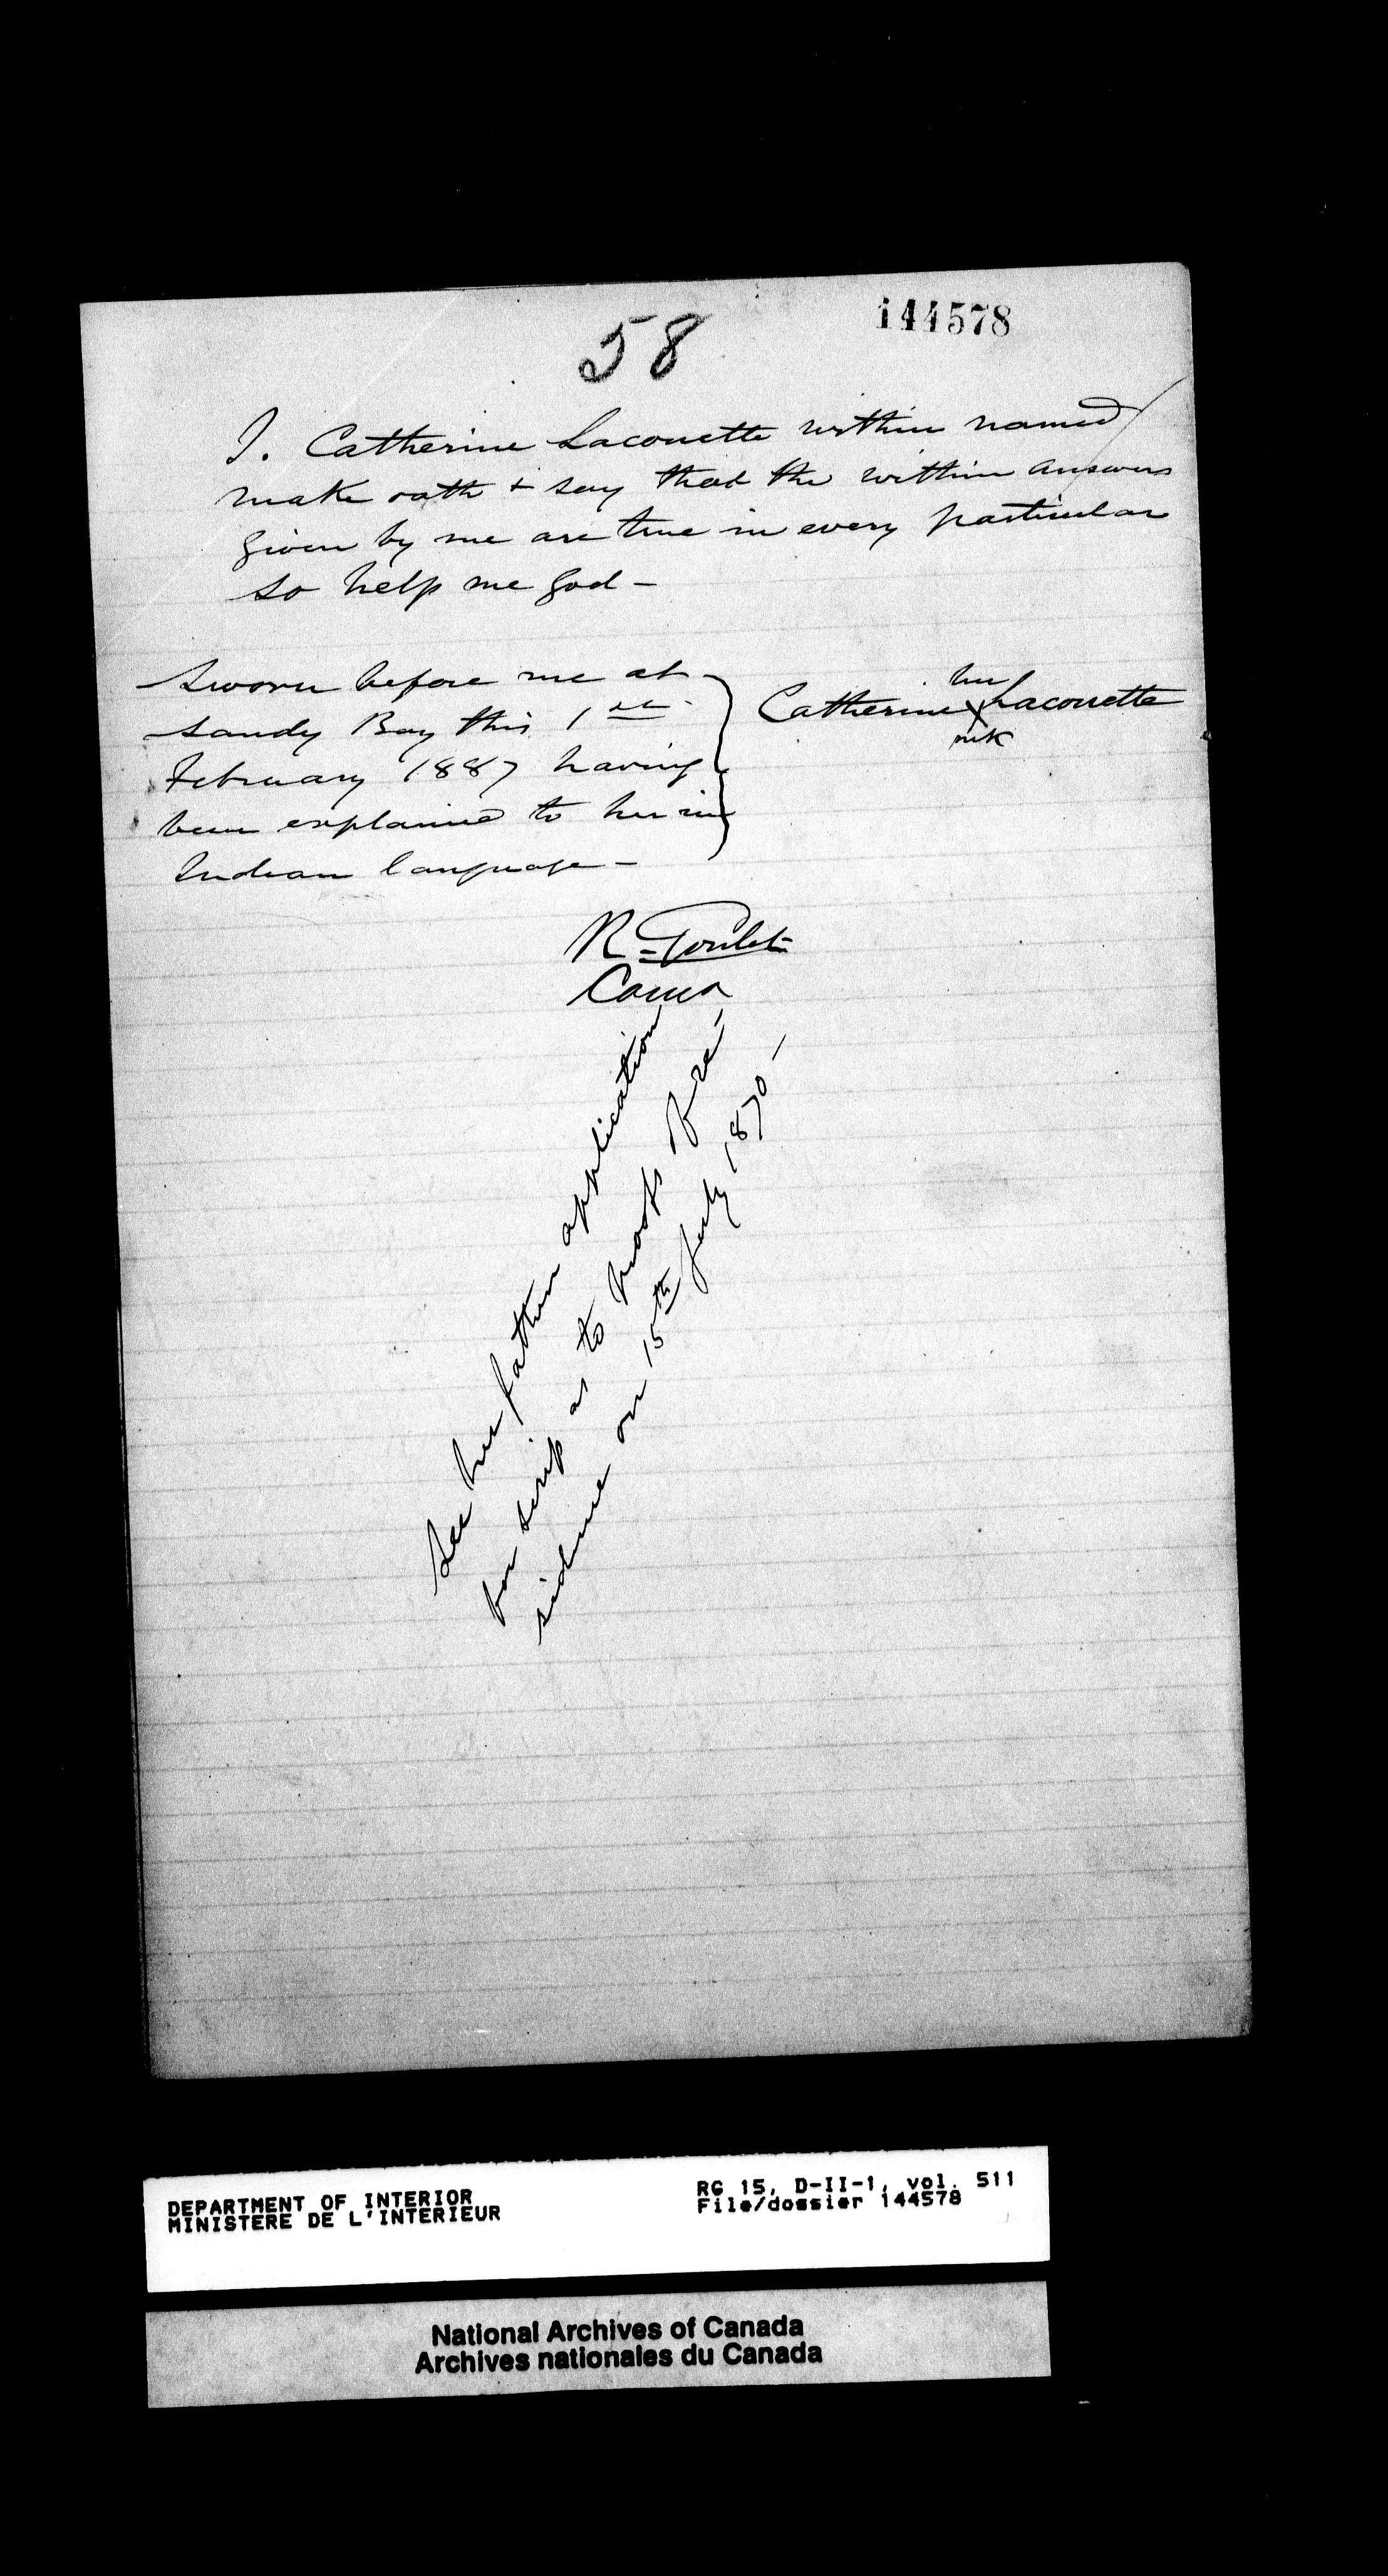 58
144578
I. Catherine Lacouette within named
make oath + say that the within answers
given by me are true in every particular
so help me God -
Sworn before me at
Sandy Bay this 1st
February 1887 having
been explained to her in
Indian language -
her
Catherine X Lacouette
mk
R. Goulet
Comr
See her father application
for scrip as to proofs of re-
sidence on 15th July 1870 -
DEPARTMENT OF INTERIOR
MINISTERE DE L'INTERIEUR
RG 15, D-II-1, vol. 511
File/dossier 144578
National Archives of Canada
Archives nationales du Canada